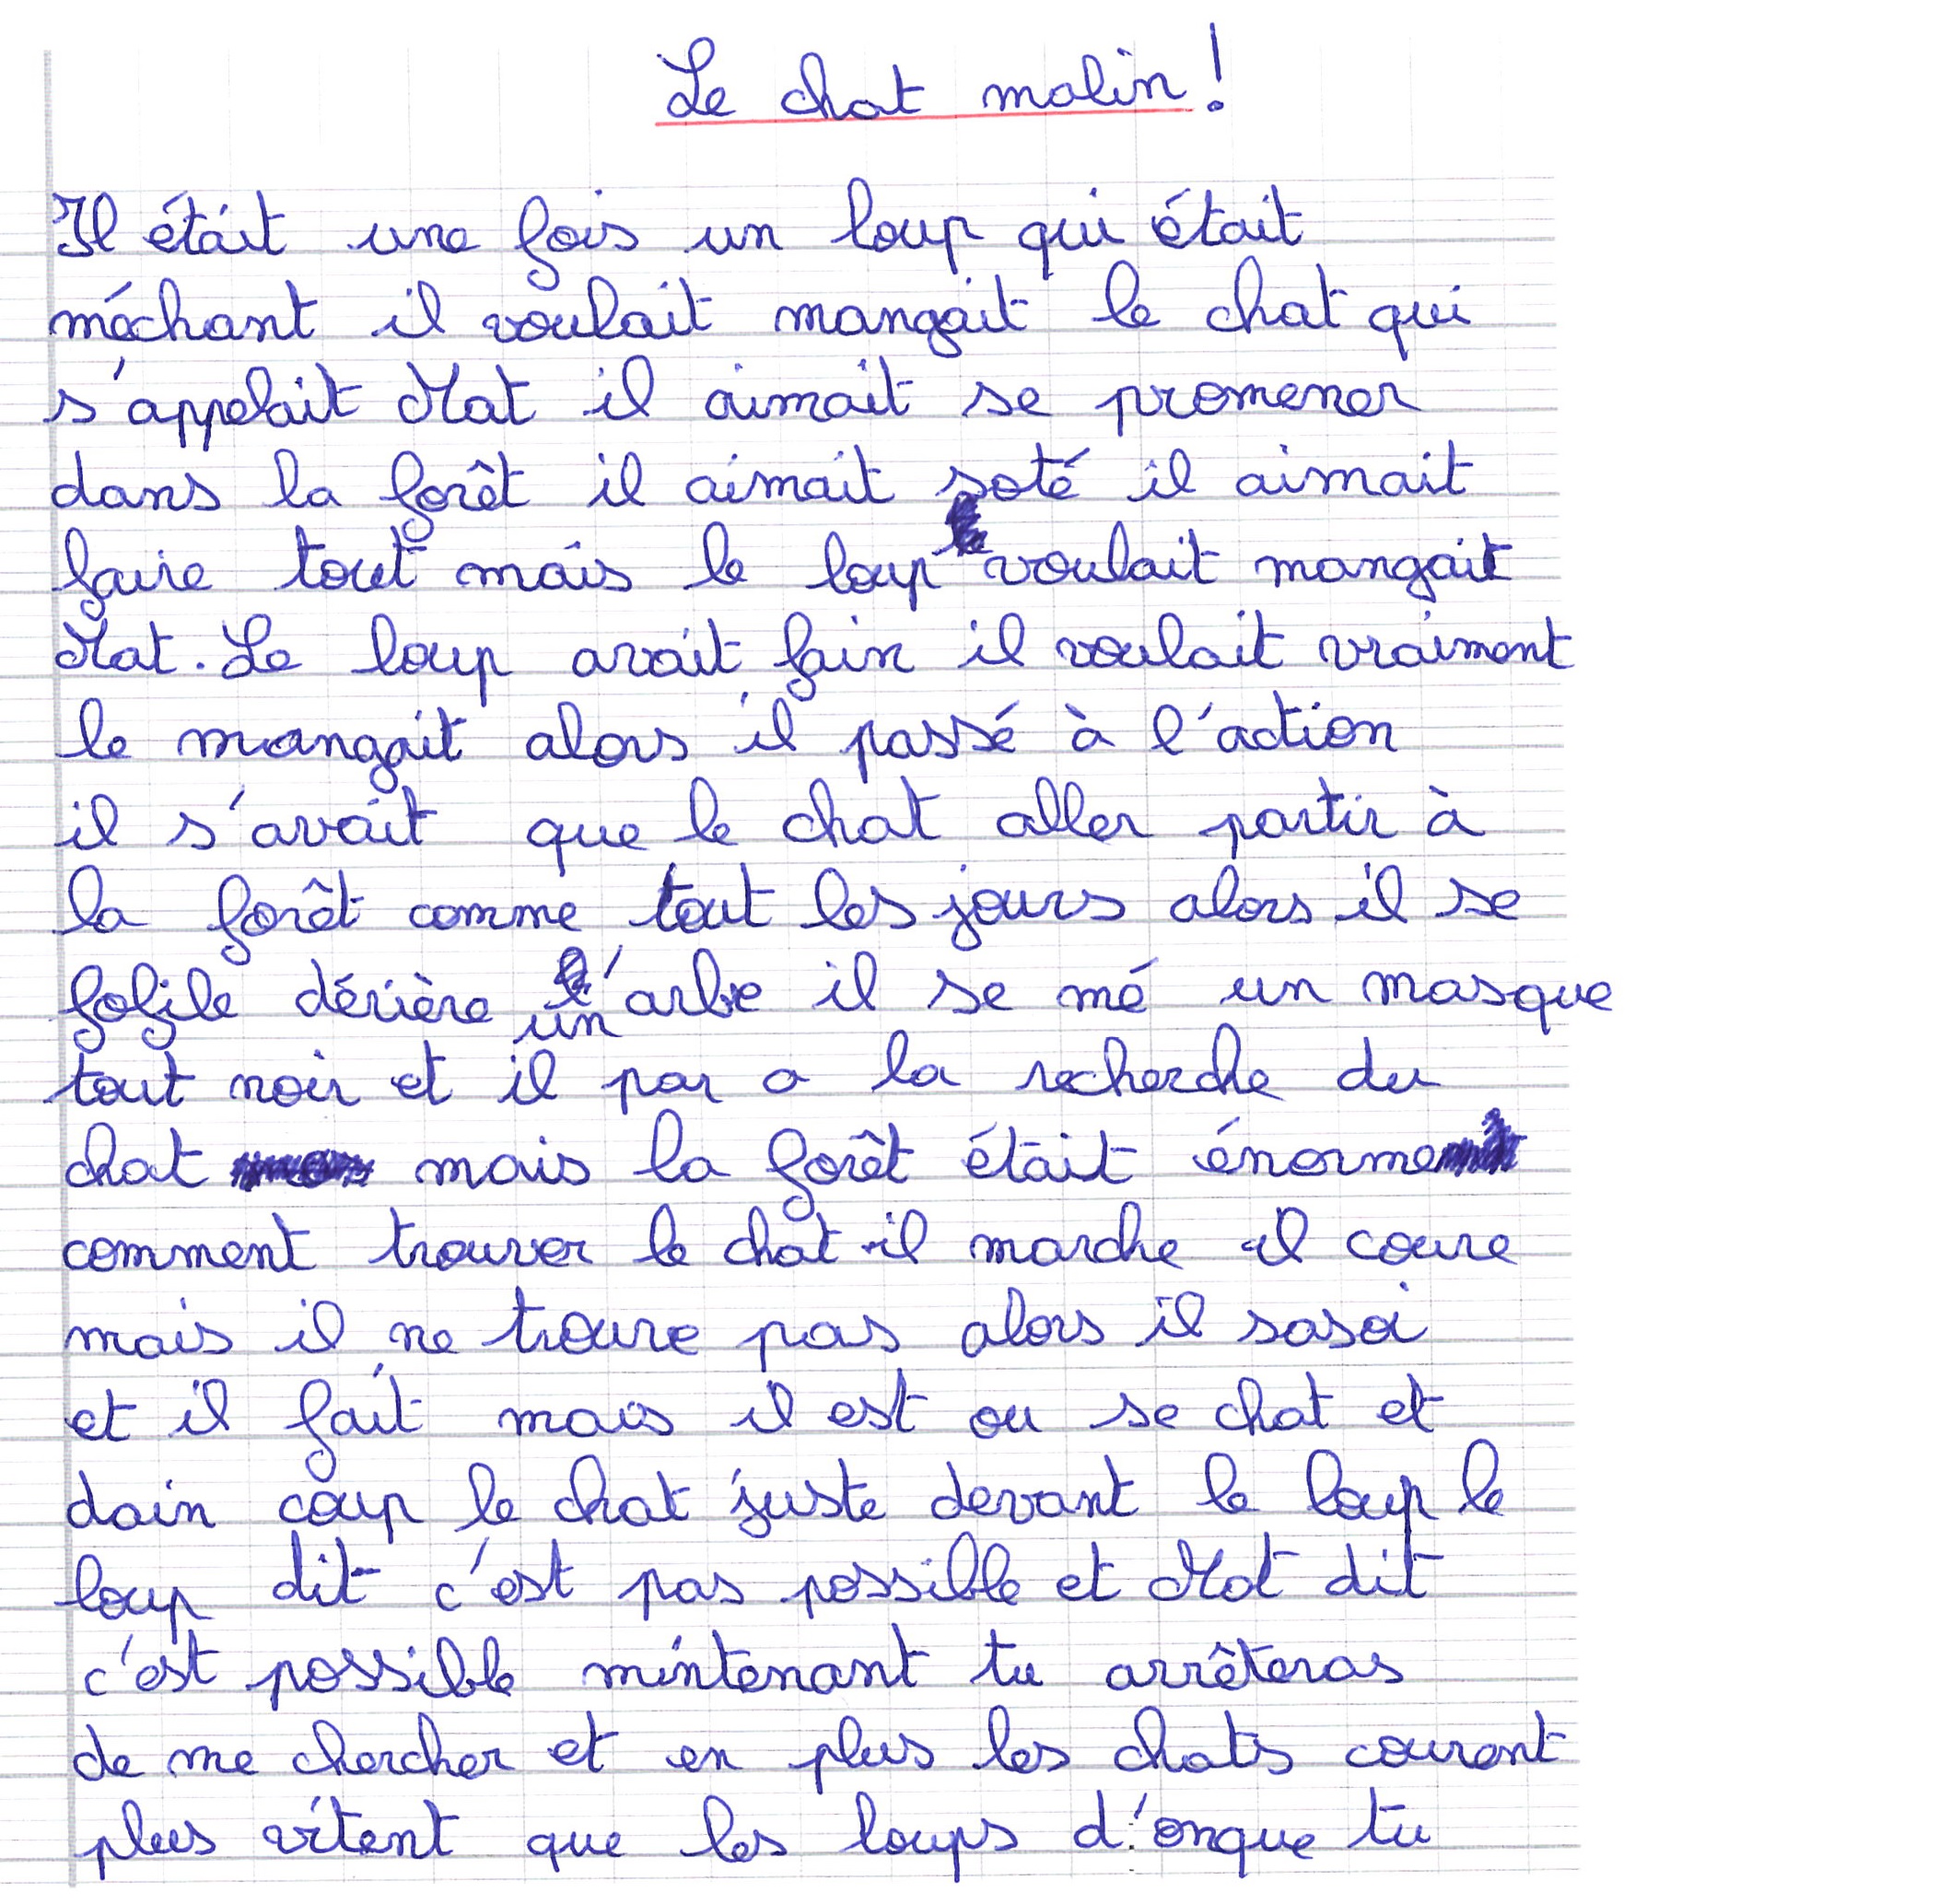 Le chat malin !
Il était une fois un loup qui était
méchant il voulait mangait le chat qui
s'appelait Mat il aimait se promener
dans la forêt il aimait soté il aimait
faire tout mais le loup voulait mangait
Mat. Le loup avait fain il voulait vraiment
le mangait alors il passé à l'action
il s'avait que le chat aller partir à
la forêt comme tout les jours alors il se
fofile dérière un arbre il se mé un masque
tout noir et il par a la recherche du
chat mais la forêt était énorme
comment trouver le chat il marche il coure
mais il ne trouve pas alors il sasoi
et il fait mais il est ou se chat et
dain coup le chat juste devant le loup le
loup dit c'est pas possible et Mat dit
c'est possible mintenant tu arrêteras
de me chercher et en plus les chats courent
plus vitent que les loups d'onque tu